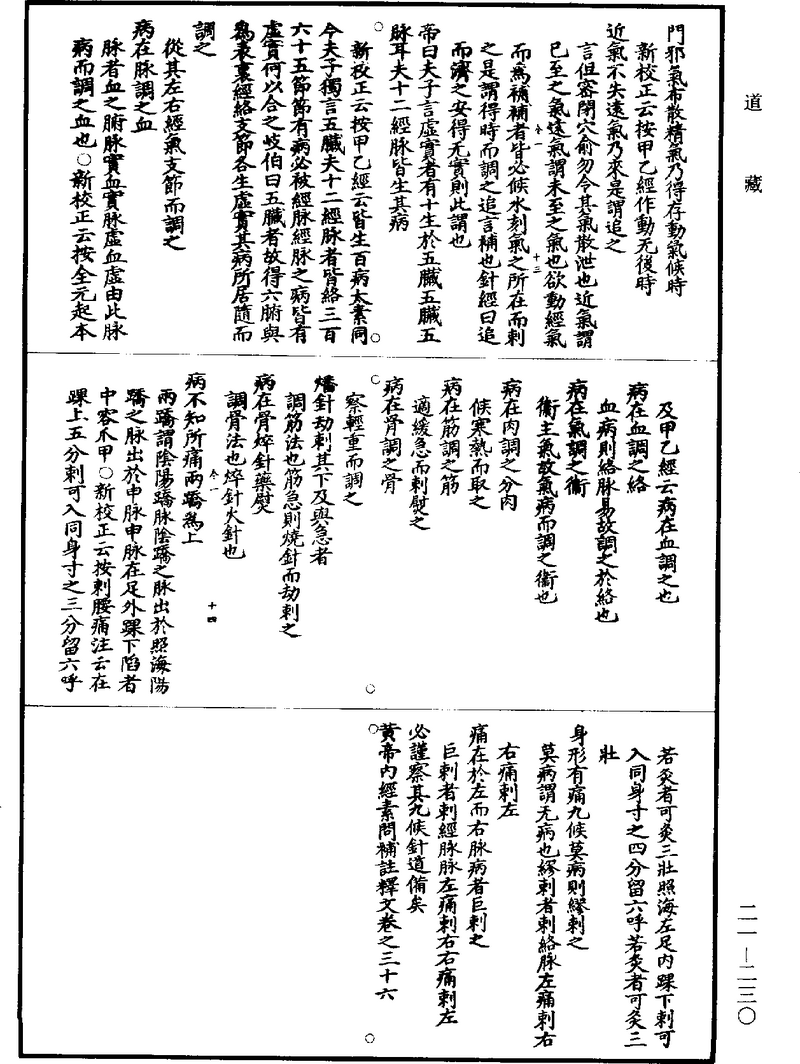 道藏
門邪氣布散精氣乃得存動氣候時
新校正云按甲乙經作動无後時
近氣不失遠氣乃來是謂追之
言但密閉穴俞勿令其氣散泄也近氣謂
已至之氣遠氣謂未至之氣也欲動經氣
卷一
十三
而爲補補者皆必候水刻氣之所在而刺
之是謂得時而調之追言補也針經曰追
而濟之安得无實則此謂也
帝曰夫子言虛實者有十生於五臟五臟五
脉耳夫十二經脉皆生其病
新校正云按甲乙經云皆生百病太素同
今夫子獨言五臟夫十二經脉者皆絡三百
六十五節節有病必被經脉經脉之病皆有
虛實何以合之岐伯曰五臟者故得六腑與
爲表裏經絡支節各生虛實其病所居隨而
調之
從其左右經氣支節而調之
病在脉調之血
脉者血之腑脉實血實脉虛血虛由此脉
病而調之血也○新校正云按全元起本
及甲乙經云病在血調之也
病在血調之絡
血病則絡脉易故調之於絡也
病在氣調之衛
衛主氣故氣病而調之衛也
病在肉調之分肉
候寒熱而取之
病在筋調之筋
適緩急而刺熨之
病在骨調之骨
察輕重而調之
燔針劫刺其下及與急者
調筋法也筋急則燒針而劫刺之
病在骨焠針藥熨
調骨法也焠針火針也
卷一
十四
病不知所痛兩蹻爲上
兩蹻謂陰陽蹻脉陰蹻之脉出於照海陽
蹻之脉出於申脉申脉在足外踝下陷者
中容爪甲○新校正云按刺腰痛注云在
踝上五分刺可入同身寸之三分留六呼
若灸者可灸三壯照海左足內踝下刺可
入同身寸之四分留六呼若灸者可灸三
壯
身形有痛九候莫病則繆刺之
莫病謂无病也繆刺者刺絡脉左痛刺右
右痛刺左
痛在於左而右脉病者巨刺之
巨刺者刺經脉脉左痛刺右右痛刺左
必謹察其九候針道備矣
黃帝內經素問補註釋文卷之三十六
二一—二三〇